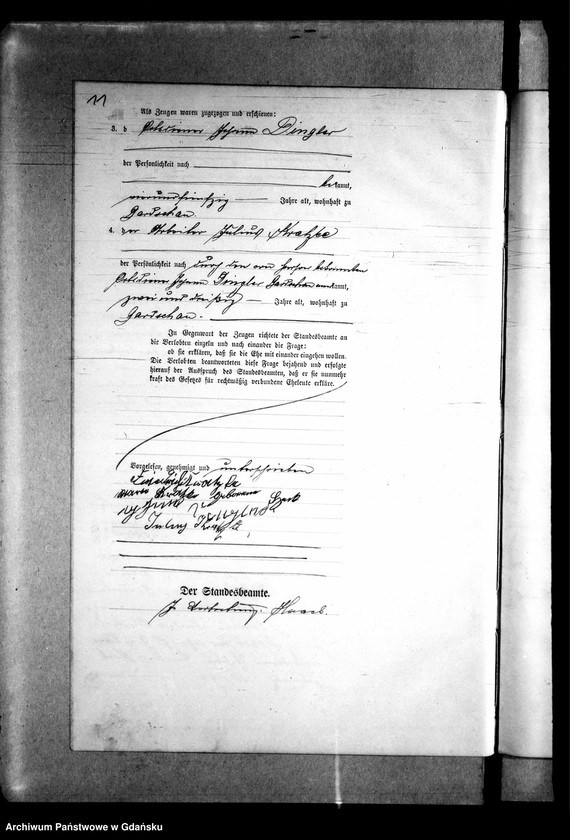 11
Als Zeugen waren zugezogen und erschienen:
3. d Johann Dingler
der Persönlichkeit nach
bekannt,
vierundfünfzig Jahre alt, wohnhaft zu
Gardschau
4. der Arbeiter Julius Kratzke
der Persönlichkeit nach durch den von Person bekannten
Johann Dingler Gardschau anerkannt,
zwei und dreißig Jahre alt, wohnhaft zu
Gardschau.
In Gegenwart der Zeugen richtete der Standesbeamte an
die Verlobten einzeln und nach einander die Frage:
ob sie erklären, daß sie die Ehe mit einander eingehen wollen.
Die Verlobten beantworteten diese Frage bejahend und erfolgte
hierauf der Ausspruch des Standesbeamten, daß er sie nunmehr
kraft des Gesetzes für rechtmäßig verbundene Eheleute erkläre.
Vorgelesen, genehmigt und unterschrieben
Kratzke
Kratzke geborene
Julius
Der Standesbeamte.
In Vertretung.
Archiwum Państwowe w Gdańsku